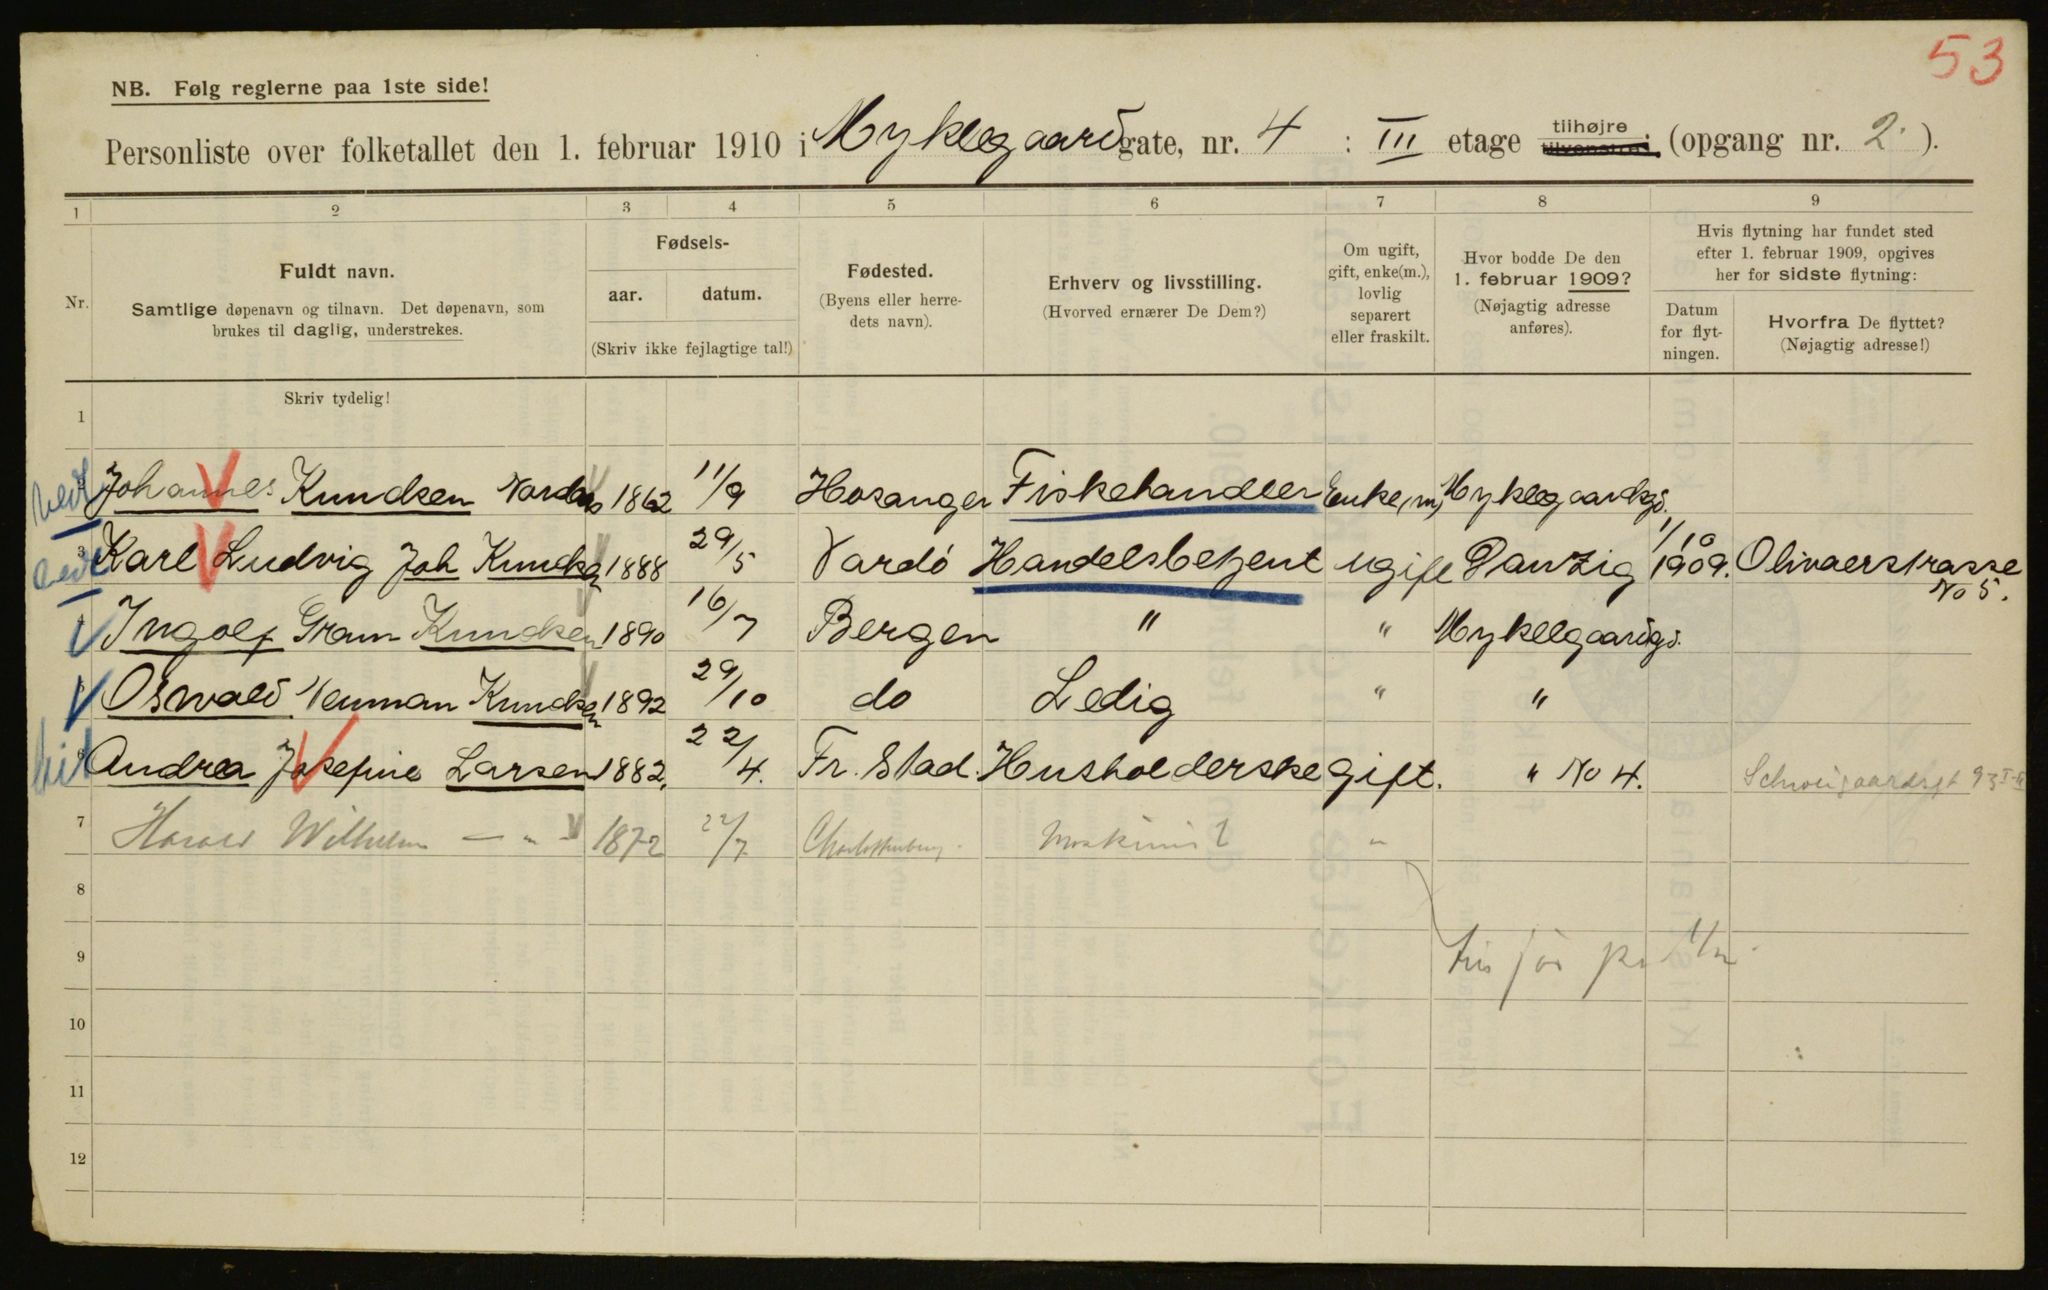 53
NB. Følg reglerne paa 1ste side!
Personliste over folketallet den 1. februar 1910 i Myklegaard gate, nr. 4 : III etage tilhøjre tilvenstre: (opgang nr. 2 ).
1 2 3 4 5 6 7 8 9
Nr. Fuldt navn. Samtlige døpenavn og tilnavn. Det døpenavn, som brukes til daglig, understrekes.
Fødsels- aar. datum. (Skriv ikke fejlagtige tal!)
Fødested. (Byens eller herredets navn).
Erhverv og livsstilling. (Hvorved ernærer De Dem?)
Om ugift, gift, enke(m.), lovlig separert eller fraskilt.
Hvor bodde De den 1. februar 1909? (Nøjagtig adresse anføres).
Hvis flytning har fundet sted efter 1. februar 1909, opgives her for sidste flytning:
Datum for flytningen.
Hvorfra De flyttet? (Nøjagtig adresse!)
Skriv tydelig!
1
2 Johannes Knudsen 1862 11/9 Hosanger Fiskehandler Enke(m) Myklegaardsg.
3 Karl Ludvig Joh Knudsen 1888 29/5 Vardö Handelsbetjent ugift Danzig 1/10 1909. Olivaerstrasse No 5.
4 Ingolf Gram Knudsen 1890 16/7 Bergen " " Myklegaardsgs.
5 Oswald Neuman Knudsen 1892 29/10 do Ledig " "
6 Andrea Josefine Larsen 1882. 22/4. Fr. Stad. Husholderske Gift. " No 4. Schweigaardsgt 93
7 Harald Wilhelm — " 1872 22/7 Charlottenberg. Maskinist "
8
9
10
11
12